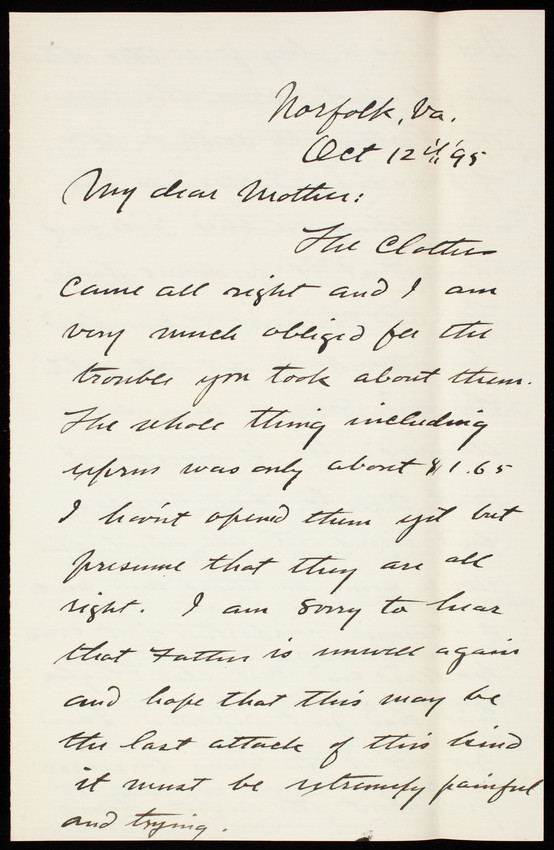 Norfolk, Va.
Oct 12th '95
My dear Mother:
The clothes
came all right and I am
very much obliged for the
trouble you took about them.
The whole thing including
express was only about $1.65
I hav'nt opened them yet but
presume that they are all
right. I am sorry to hear
that Father is unwell again
and hope that this may be
the last attack of this kind
it must be extremely painful
and trying.